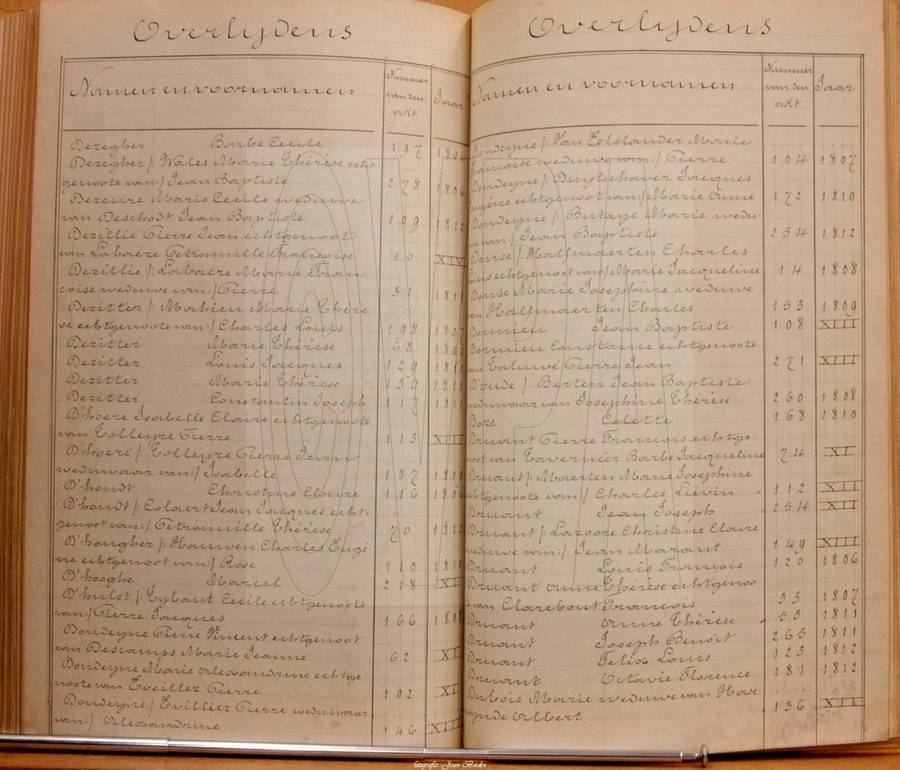 Overlydens
Namen en voornamen
Nummer van den akt
Jaar
Dezegher Barbe Cecile 197
Dezegher /: Wales Marie Thérèse echt-
genoote van :/ Jean Baptiste 278 1806
Dezeure Marie Cecile weduwe
van Deschodt Jean Baptiste 109 1812
Dezillie Pierre Jean echtgenoot
van Labaere Petronnille Françoise 10 XIV
Dezillie /: Labaere Marie Fran-
çoise weduwe van :/ Pierre 31 1811
Dezitter /: Mahieu Marie Thérè-
se echtgenoote van :/ Charles Louis 198 1807
Dezitter Marie Thérèse 68
Dezitter Louis Jacques 129
Dezitter Marie Thérèse 159
Dezitter Constantin Joseph 117 1811
D'hoere Isabelle Claire echtgenoote
van Tolleyre Pierre 113 XIII
D'hoere /: Tolleyre Pierre Jean
weduwaar van :/ Isabelle 187 1810
D'hondt Christine Claire 116
D'hondt /: Colaert Jean Jacques echt-
genoot van :/ Petronnille Thérèse 70 1812
D'hongher /: Hauwen Charles Eugè-
ne echtgenoot van :/ Rose 110
D'hooghe Marcel 218 XII
D'hulst /: Tybaut Cecile echtgenoote
van :/ Pierre Jacques 166
Dondeyne Pierre Vincent echtgenoot
van Descamps Marie Jeanne 62 XI
Dondeyne Marie Alexandrine echtge-
noote van Eveillez Pierre 102 XI
Dondeyne /: Evilliez Pierre weduwaar
van :/ Alexandrine 146 XII
Overlydens
Namen en voornamen
Nummer van den akt
Jaar
Dondeyne /: Van Elslander Marie
Françoise weduwe van :/ Pierre 104 1807
Dondeyne /: Duytschaver Jacques
Eugène echtgenoot van :/ Marie Anne 172 1810
Dondeyne /: Butaye Marie wedu-
we van :/ Jean Baptiste 254 1812
Donse /: Halfmaerten Charles
Louis echtgenoot van :/ Marie Jacqueline 14 1808
Donse Marie Josephine weduwe
van Halfmaerten Charles 153 1809
Dormieu Jean Baptiste 108 XIII
Dormieu Constance echtgenoote
van Caluwé Pierre Jean 271 XIII
D'oude /: Berten Jean Baptiste
weduwaar van Josephine Thérèse 260 1808
Doze Colette 168 1810
Druant Pierre François echtge-
noot van Tavernier Barbe Jacqueline 74 XI
Druant /: Maerten Marie Josephine
echtgenoote van :/ Charles Liévin 112 XII
Druant Jean Joseph 254 XII
Druant /: Lazoore Christine Claire
weduwe van :/ Jean Mazant 149 XIII
Druant Louis François 120 1806
Druant Anne Thérèse echtgenoo-
te van Clarebout François 33 1807
Druant Anne Thérèse 53 1811
Druant Joseph Benoît 265 1811
Druant Felix Louis 123 1812
Druant Octavie Florence 181 1812
Dubois Marie weduwe van
Albert 136 XII
fotografie: Jean Boidin